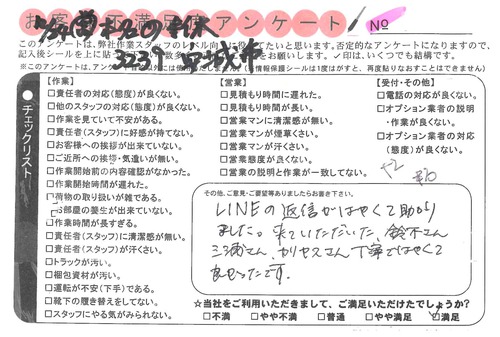 お客様不満足度アンケート No
このアンケートは、弊社作業スタッフのレベル向上に役立てたいと思います。否定的なアンケートになりますので、
※このアンケートは、
(情報保護シールは1度はがすと、再度貼りなおすことはできません)
●チェックリスト
【作業】
□責任者の対応(態度)が良くない。
□他のスタッフの対応(態度)が良くない。
□作業を見ていて不安がある。
□責任者(スタッフ)に好感が持てない。
□お客様への挨拶が出来ていない。
□ご近所への挨拶・気遣いが無い。
□作業開始前の内容確認がなかった。
□作業開始時間が遅れた。
□荷物の取り扱いが雑である。
お部屋の養生が出来ていない。
□作業時間が長すぎる。
□責任者(スタッフ)に清潔感が無い。
□責任者(スタッフ)が汗くさい。
□トラックが汚い。
□梱包資材が汚い。
□運転が不安(下手)である。
□靴下の履き替えをしてない。
□スタッフにやる気がみられない。
【営業】
□見積もり時間に遅れた。
□見積もり時間が長い。
□営業マンに清潔感が無い。
□営業マンが煙草くさい。
□営業マンが汗くさい。
□営業態度が良くない。
□営業の説明と作業が一致してない。
【受付・その他】
□電話の対応が良くない。
□オプション業者の説明
・作業が良くない。
□オプション業者の対応
(態度)が良くない。
その他、ご意見・ご要望等ありましたらお書き下さい。
LINEの返信がはやくて助かり
ました。来ていただいた、鈴木さん
三浦さん、カリヤスさん丁寧ではやくて
良かったです。
☆当社をご利用いただきまして、ご満足いただけたでしょうか?
□不満 □やや不満 □普通 □やや満足 □満足